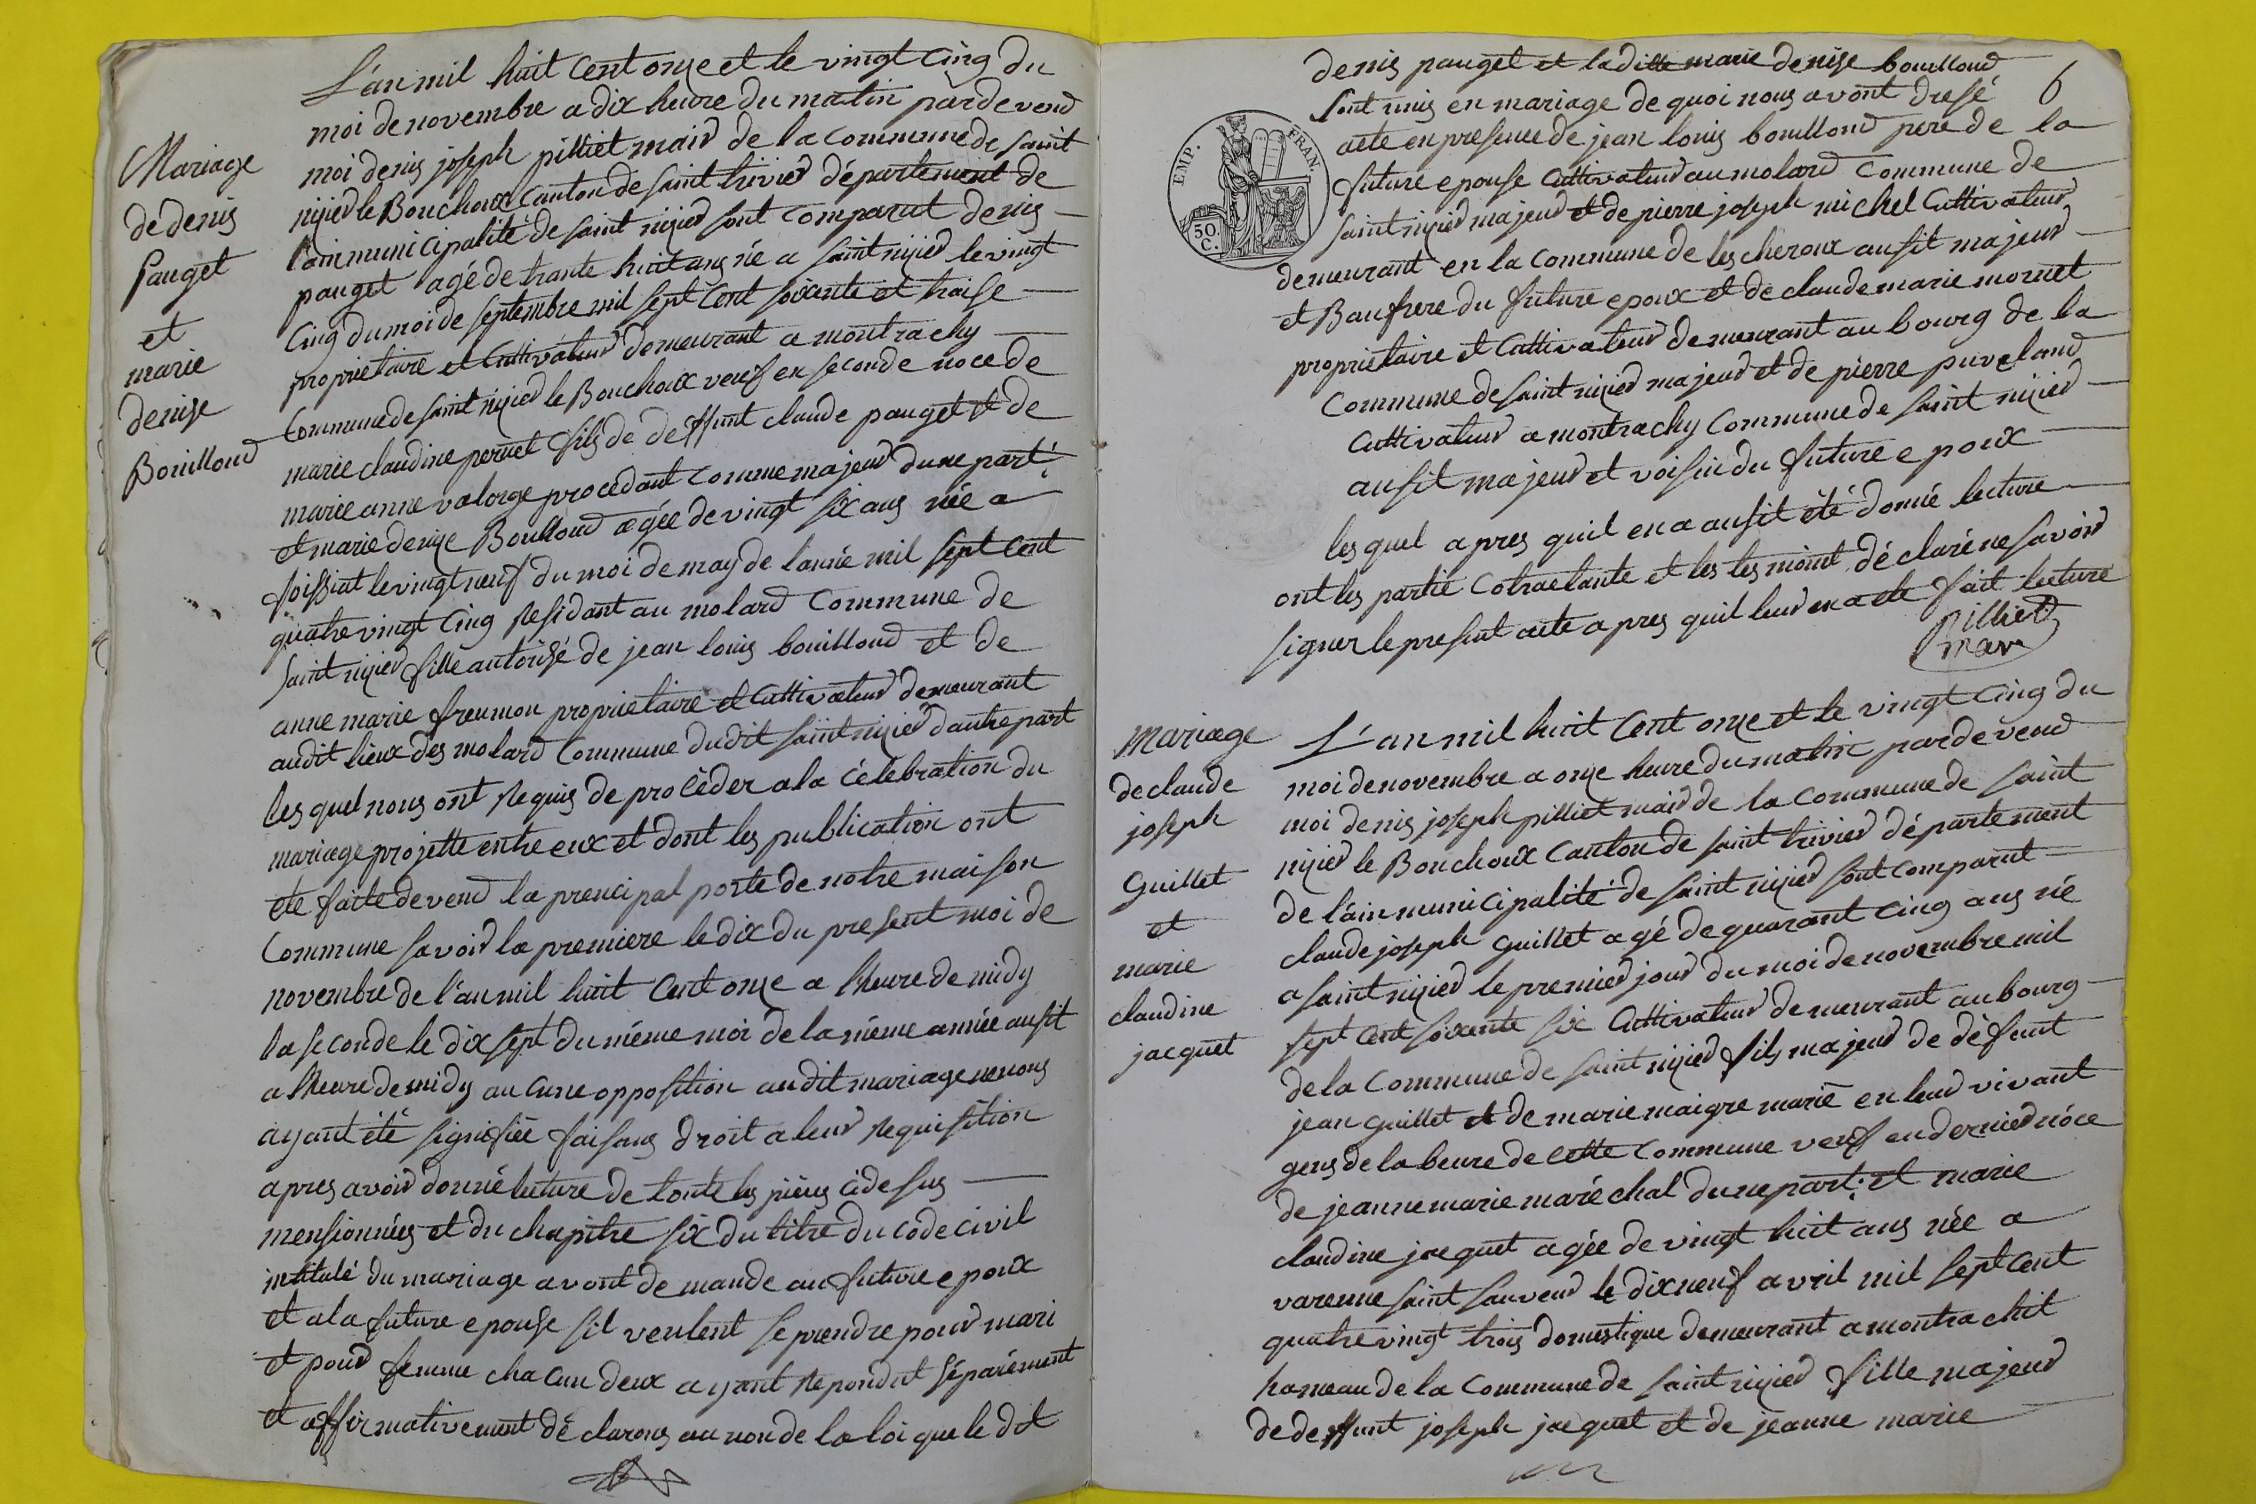 Mariage
de denis
pauget
et
marie
denise
Bouilloud
L'an mil huit Cent onze et le vingt Cinq du
moi de novembre a dix heure du matin pardevend
moi denis joseph pilliet mair de la Commune de saint
nizier le Bouchoux Canton de saint trivier département de
l'ain municipalité de saint nizier sont comparut denis
pauget agé de trante huit ans né a saint nizier le vingt
Cinq du moi de septembre mil sept Cent soixante et traise
proprietaire et Cultivateur demeurant a montrachy
Commune de saint nizier le Bouchoux veuf en seconde noce de
marie claudine pernet fils de deffunt claude pauget et de
marie anne valorge procédant comme majeur dune part
et marie denize Boulloud agée de vingt six ans née a
foissiat le vingt neuf du moi de may de l'année mil sept Cent
quatre vingt Cinq Residant au molard Commune de
saint nizier fille autorisé de jean louis bouilloud et de
anne marie freumon proprietaire et Cultivateur demeurant
audit lieux des molard Commune dudit saint nizier dautre part
les quel nous ont Requis de proCéder a la Célebration du
mariage projetté entre eux et dont les publication ont
été faite devend la prencipal porte de notre maison
Commune savoir la premiere le dix du present moi de
novembre de l'an mil huit Cent onze a l'heure de midy
la seconde le dix sept du même moi de la même année ausit
a l'heure de midy auCune opposition audit mariage ne nous
ayant été signifiée faisans droit a leur Requisition
apres avoir donné lecture de toute les pièces cidesus
mensionnées et du chapitre six du titre du code civil
intitulé du mariage avont demande au future epoux
et a la future epouse sil veulent se prendre pour mari
et pour femme chaCun deux ayant Repondut séparément
et affirmativement déclarons au non de la loi que le dit
6
denis pauget et ladille marie denise bouilloud
sont unis en mariage de quoi nous avont dresé
acte en presence de jean louis bouilloud pere de la
future epouse Cultivateur au molard Commune de
saint nizier majeur et de pierre joseph michel Cultivateur
demeurant en la Commune de lescheroux ausit majeur
et Baufrere du future epoux et de claude marie mornet
proprietaire et Cultivateur demeurant au bourg de la
Commune de saint nizier majeur et de pierre puveland
Cultivateur a montrachy Commune de saint nizier
ausit majeur et voisin du future epoux
les quel apres quil en a ausit été donné lecture
ont les partie Cotractante et les tesmoint déclaré ne savoir
signer le present acte apres quil leur en a ete fait lecture
Pilliet
mair
EMP. FRAN.
50 C.
Mariage
de claude
joseph
Guillet
et
marie
claudine
jacquet
L'an mil huit Cent onze et le vingt Cinq du
moi de novembre a onze heure du matin pardevend
moi denis joseph pilliet mair de la Commune de saint
nizier le Bouchoux Canton de saint trivier département
de l'ain municipalité de saint nizier sont comparut
claude joseph Guillet agé de quarant Cinq ans né
a saint nizier le premier jour du moi de novembre mil
sept Cent soixante six Cultivateur demeurant au bourg
de la Commune de saint nizier fils majeur de défunt
jean Guillet et de marie maigre marié en leur vivant
gens de labeure de Cette Commune veuf en dernier nôce
de jeanne marie maréchal dune part. et marie
claudine jacquet agée de vingt huit ans née a
varenne saint sauveur le dixneuf avril mil sept Cent
quatre vingt trois domestique demeurant a montrachit
hameau de la Commune de saint nizier fille majeur
de deffunt joseph jacquet et de jeanne marie